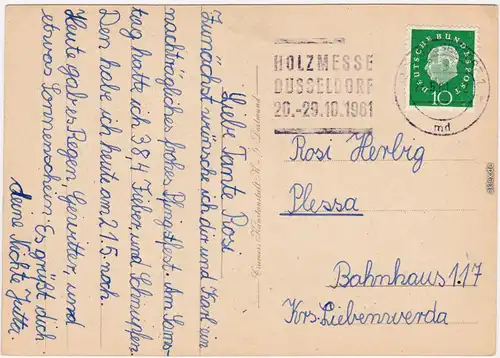 Liebe Tante Rosi
Zunächst wünsche ich dir und Karl ein
nachträgliches frohes Pfingstfest. Am Sams-
tag hatte ich 38,4 Fieber, und Schnupfen.
Den habe ich heute am 21.5. noch.
Heute gab es Regen, Gewitter, und
etwas Sonnenschein. Es grüßt dich
deine Nichte Jutta.
HOLZMESSE
DÜSSELDORF
20.-29.10.1961
md
DEUTSCHE BUNDESPOST
10
Rosi Herbig
Plessa
Bahnhaus 117
Krs. Liebenwerda